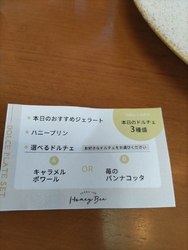 DOLCE PLATE SET
本日のドルチェ
3種盛
・本日のおすすめジェラート
・ハニープリン
・選べるドルチェ
お好きなドルチェをお選びください
A
キャラメル
ポワール
OR
B
苺の
パンナコッタ
Honey Bee